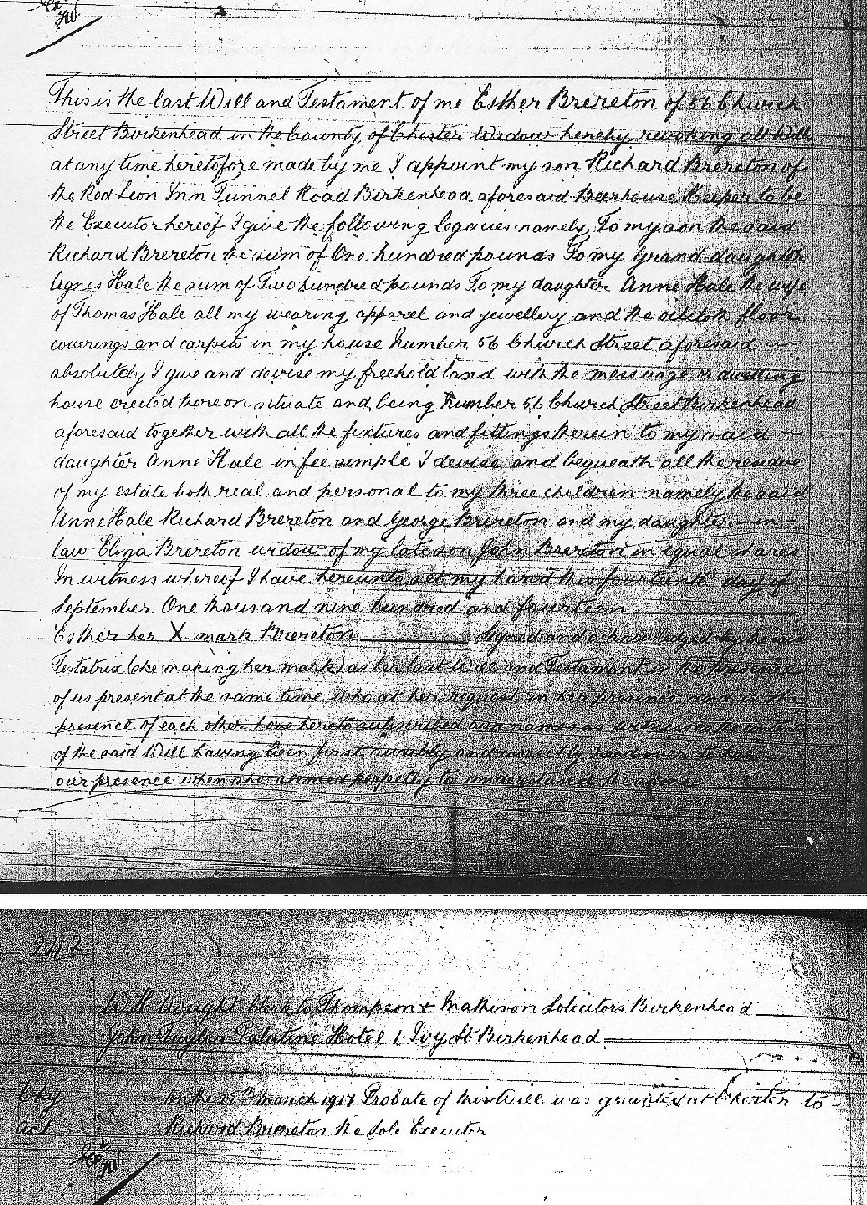 This is the last Will and Testament of me Esther Brereton of 56 Church
Street Birkenhead in the County of Chester Widow hereby revoking all wills
at any time heretofore made by me I appoint my son Richard Brereton of
the Red Lion Inn Tunnel Road Birkenhead aforesaid Beerhouse Keeper to be
the Executor hereof I give the following legacies namely To my son the said
Richard Brereton the sum of One hundred pounds To my Grand-daughter
Agnes Hale the sum of Two hundred pounds To my daughter Anne Hale the wife
of Thomas Hale all my wearing apparel and jewellery and the oilcloth floor
coverings and carpets in my house Number 56 Church Street aforesaid
absolutely I give and devise my freehold land with the messuage or dwelling
house erected thereon situate and being Number 56 Church Street Birkenhead
aforesaid together with all the fixtures and fittings therein to my said
daughter Anne Hale in fee simple I devise and bequeath all the residue
of my estate both real and personal to my three children namely the said
Anne Hale Richard Brereton and George Brereton and my daughter-in-
law Eliza Brereton widow of my late son John Brereton in equal shares
In witness whereof I have hereunto set my hand this day of
September One thousand nine hundred and fourteen
Esther her X mark Brereton Signed and acknowledged by the said
Testatrix (she making her mark) as her last Will and Testament in the presence
of us present at the same time who at her request in her presence and in the
presence of each other have hereto subscribed our names as witnesses
of the said Will having been first audibly and
our presence when she seemed properly to understand
Clerk to Thompson & Mathison Solicitors Birkenhead
John Palatine Hotel 1 Ivy St Birkenhead
On the March Probate of this Will was granted at Chester to
Richard Brereton the Sole Executor